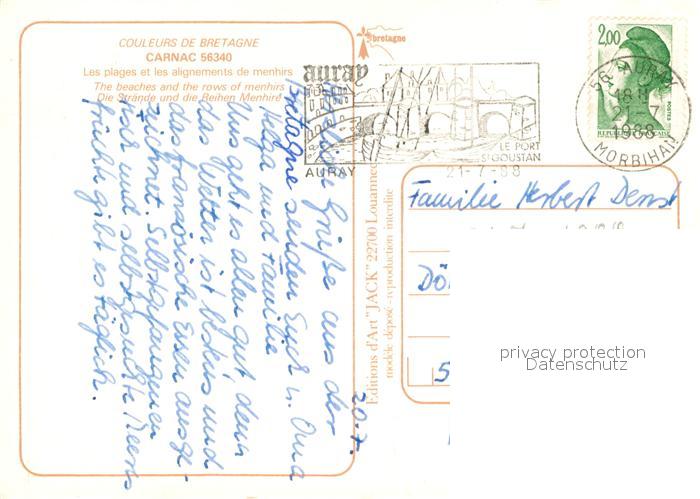 COULEURS DE BRETAGNE
CARNAC 56340
Les plages et les alignements de menhirs
The beaches and the rows of menhirs
Die Strände und die Reihen Menhire
bretagne
auray
AURAY
LE PORT
ST GOUSTAN
21-7-88
2,00
POSTES
REPUBLIQUE FRANÇAISE
56 AURAY
18H
21-7
1988
MORBIHAN
Editions d'Art "JACK" 22700 Louannec
modèle déposé - reproduction interdite
20.7.
Grüße aus der
Bretagne senden Euch u. Oma
Helga und Familie
Uns geht es allen gut, denn
das Wetter ist und
das französische Essen ausge-
zeichnet. Selbstgefangenen
und selbstgesuchte Meeres
früchte gibt es täglich.
Familie Herbert
Dö
5
privacy protection
Datenschutz